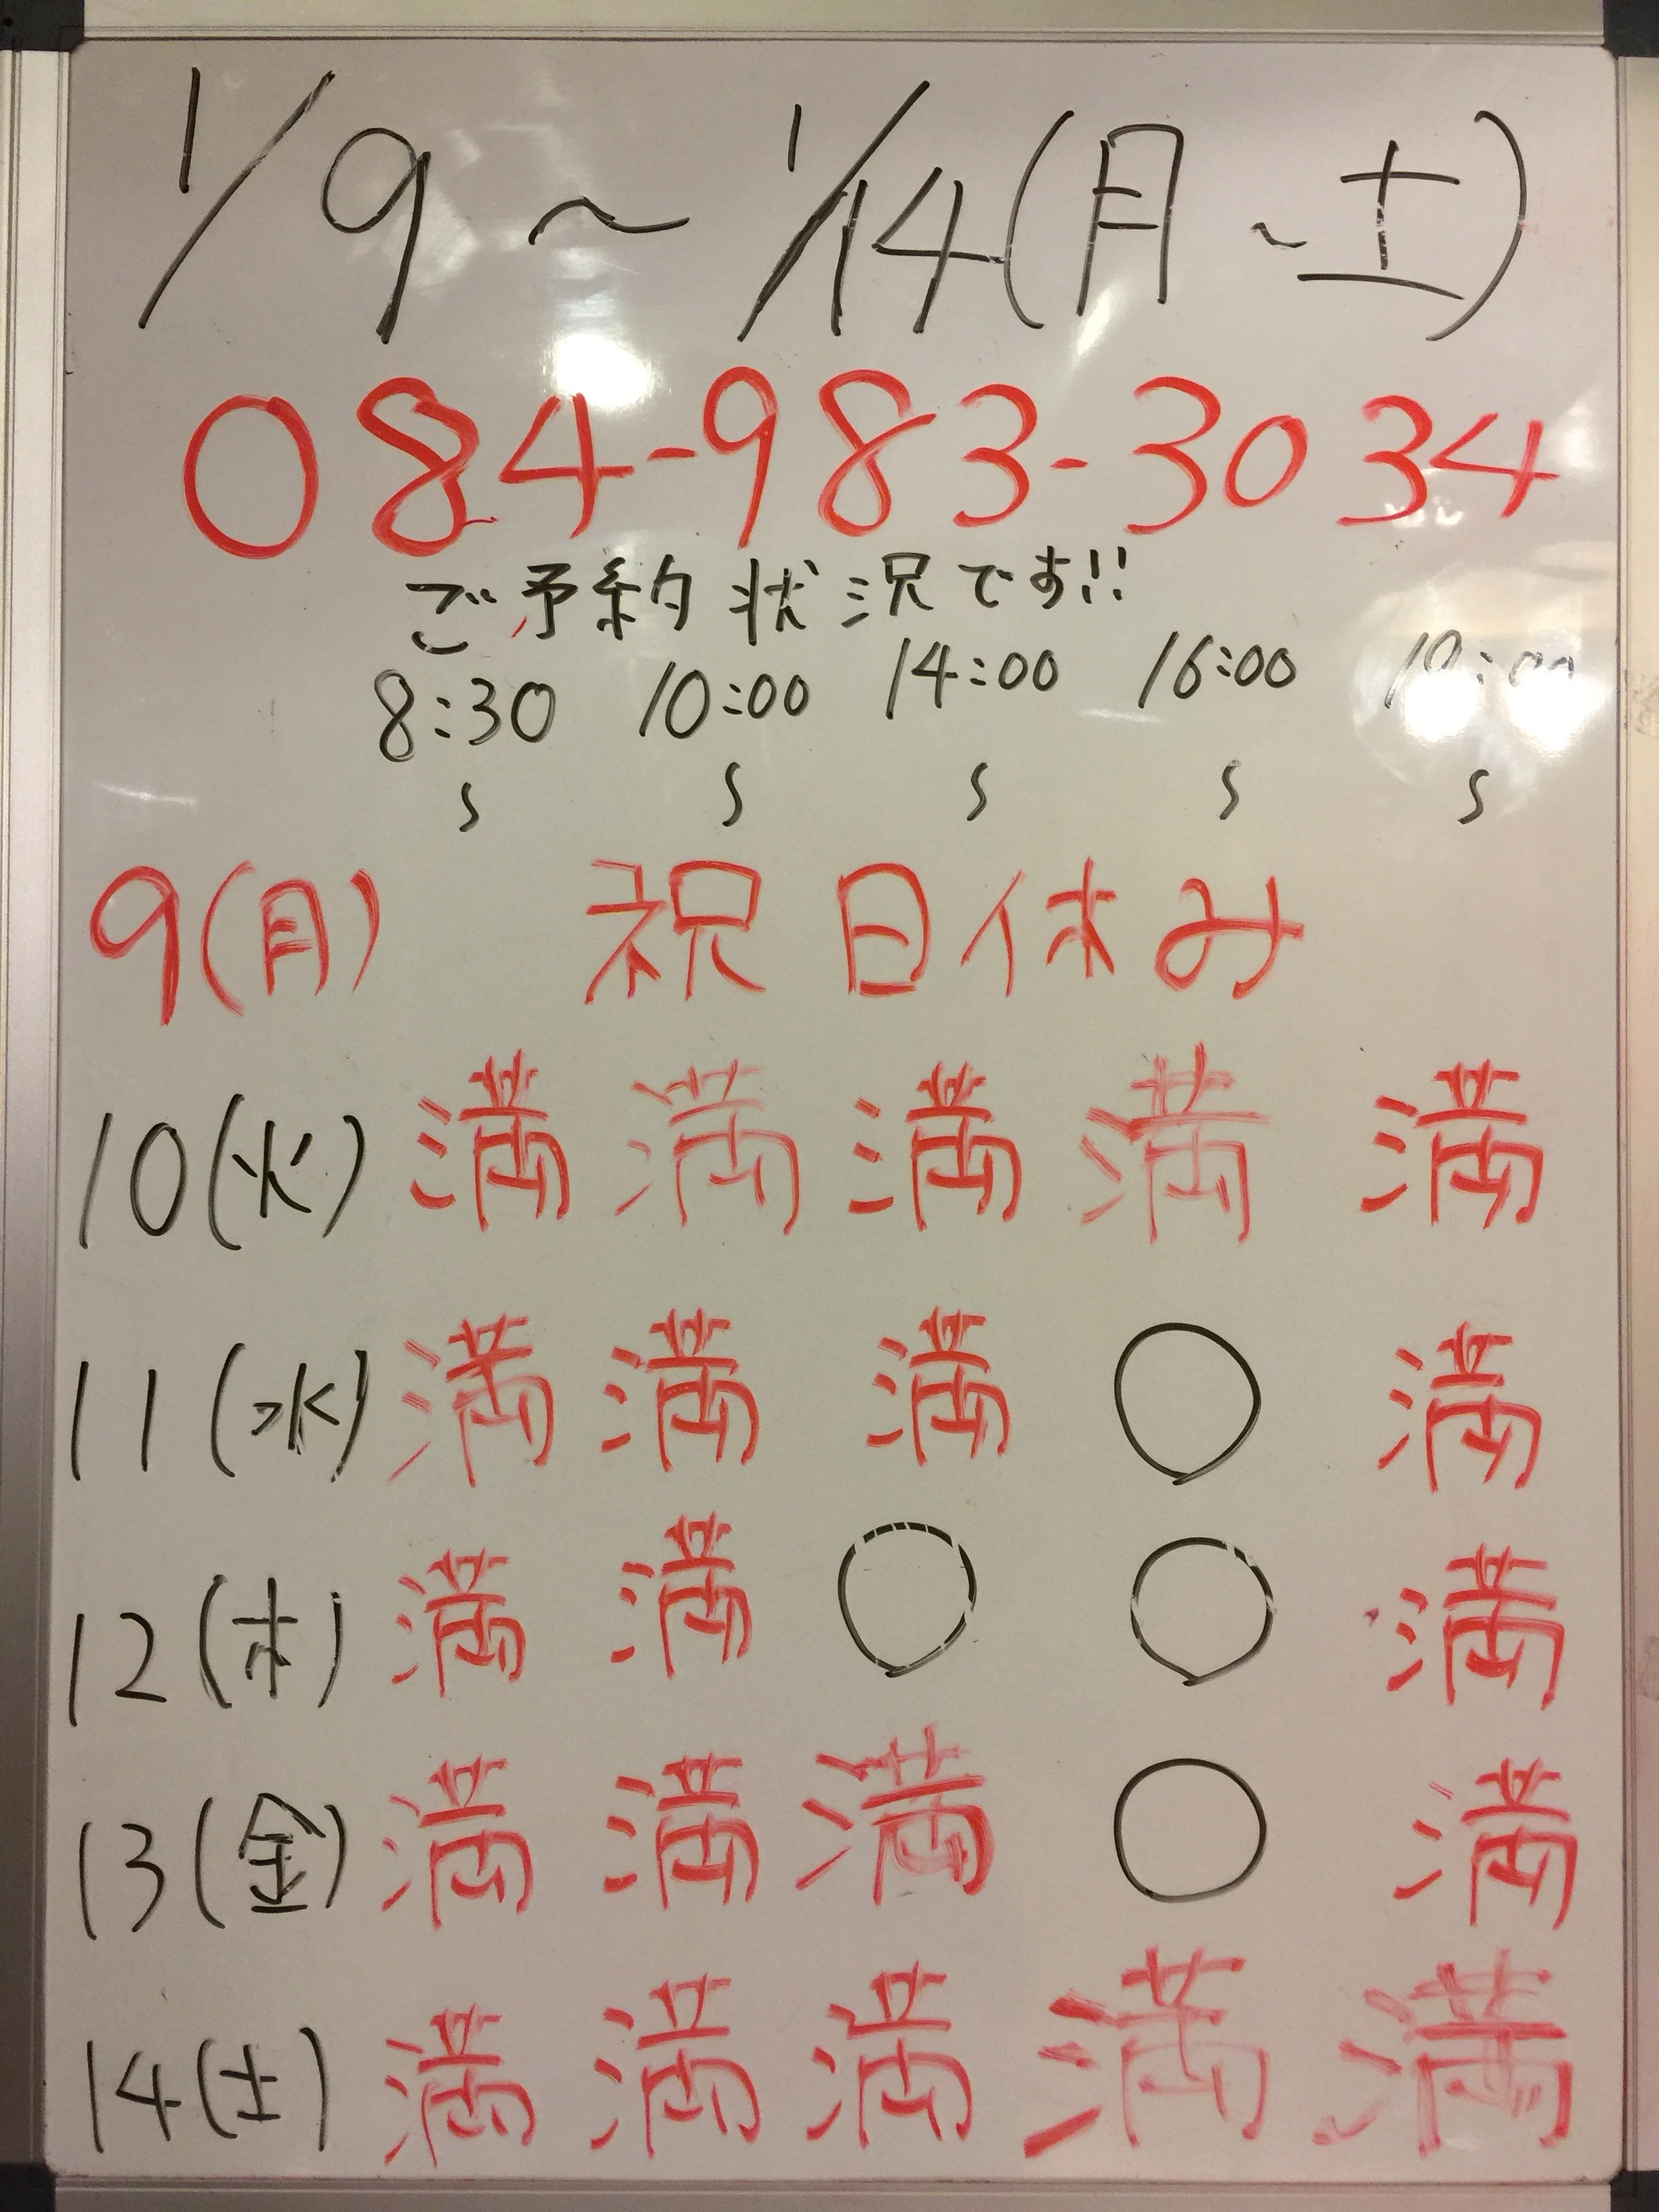 1/9 ～ 1/14(月～土)
084-983-3034
ご予約状況です!!
8:30 10:00 14:00 16:00
～ ～ ～ ～ ～
9(月) 祝日休み
10(火) 満 満 満 満 満
11(水) 満 満 満 ○ 満
12(木) 満 満 ○ ○ 満
13(金) 満 満 満 ○ 満
14(土) 満 満 満 満 満